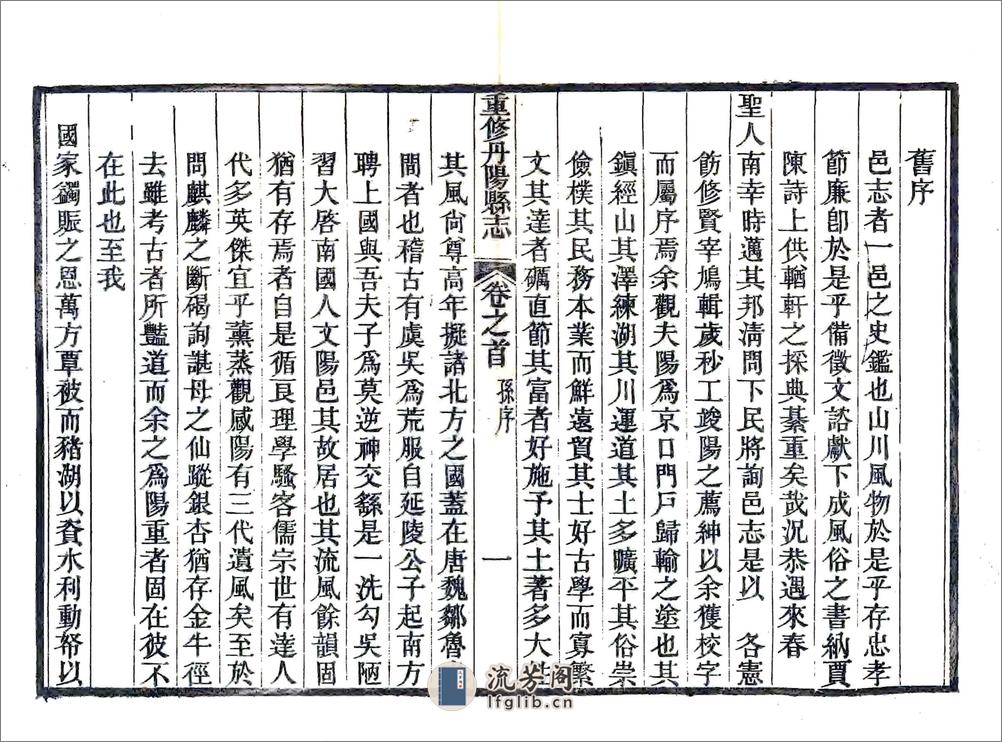 舊序
邑志者一邑之史鑑也山川風物於是乎存忠孝
節廉卽於是乎備徵文諮獻下成風俗之書納賈
陳詩上供輶軒之採典綦重矣哉况恭遇來春
聖人南幸時邁其邦淸問下民將詢邑志是以 各憲
飭修賢宰鳩輯歲秒工竣陽之薦紳以余獲校字
而屬序焉余觀夫陽爲京口門戸歸輸之塗也其
鎭經山其澤練湖其川運道其土多曠平其俗崇
儉樸其民務本業而鮮遠貿其士好古學而寡繁
文其達者礪直節其富者好施予其土著多大姓
重修丹陽縣志 卷之首 孫序 一
其風尙尊高年擬諸北方之國蓋在唐魏鄒魯
間者也稽古有虞吳爲荒服自延陵公子起南方
聘上國與吾夫子爲莫逆神交繇是一洗勾吳陋
習大啓南國人文陽邑其故居也其流風餘韻固
猶有存焉者自是循良理學騷客儒宗世有達人
代多英傑宜乎薰蒸觀感陽有三代遺風矣至於
問麒麟之斷碣詢諶母之仙蹤銀杏猶存金牛徑
去雖考古者所豔道而余之爲陽重者固在彼不
在此也至我
國家蠲賑之恩萬方覃被而豬湖以資水利動帑以
流芳阁
lfglib.cn